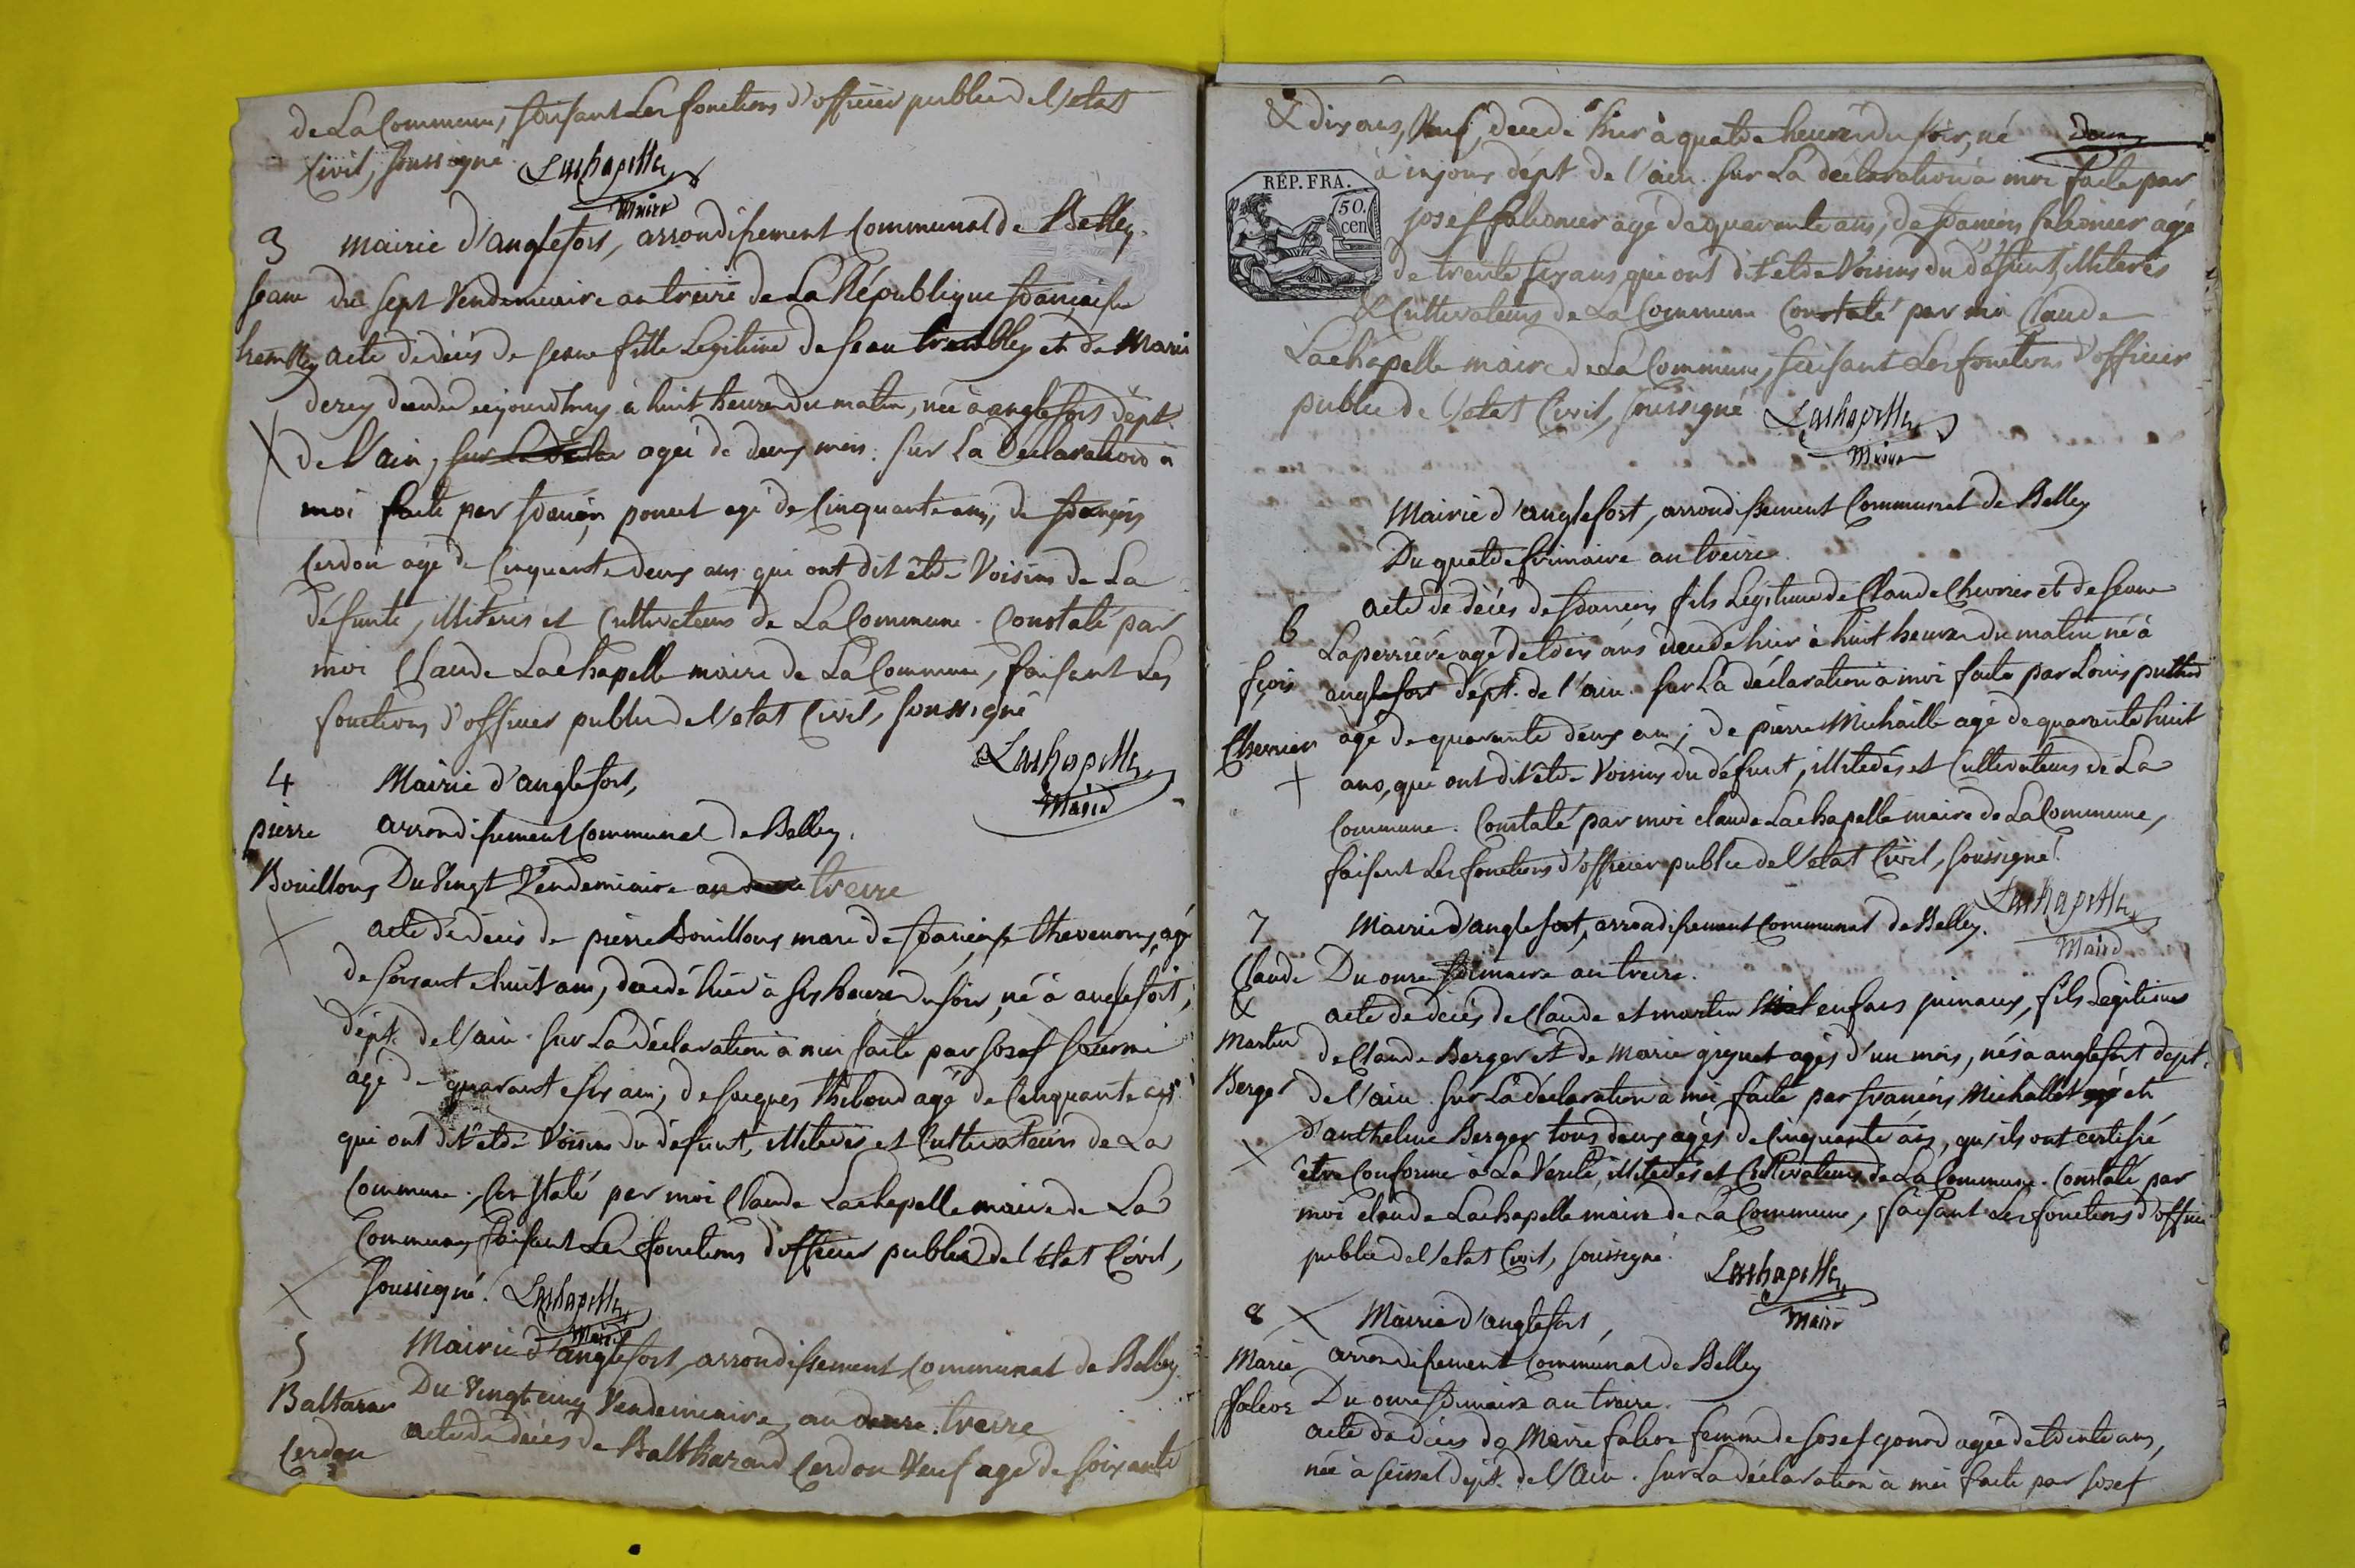 de La Commune, faisant Les fonctions d'officier public de l'etat
Civil, soussigné. Lachapelle
Maire
3 Mairie d'anglefort, arrondissement Communal de Belley.
Jeane du sept Vendemiaire an treize de La République française
trembley acte de décès de Jeane fille Legitime de Jean trembley et de Marie
derey décédée aujourdhuy à huit heures du matin, née à anglefort dépt.
de l'ain, agée de deux mois. sur La Déclaration à
moi faite par françois poncet agé de Cinquante ans, de françois
Cerdon agé de Cinquante deux ans qui ont dit être Voisins de La
défunte, illiterés et Cultivateurs de La Commune. Constaté par
moi Claude Lachapelle maire de La Commune, faisant Les
fonctions d'officier public de l'etat Civil, soussigné
Lachapelle
Maire
4 Mairie d'anglefort,
pierre arrondissement Communal de Belley.
Bouilloux Du Vingt Vendemiaire an treize
acte de décès de pierre Bouilloux mari de françoise thevenon, agé
de soixante huit ans, décédé hier à six heures du soir, né à anglefort,
dépt. de l'ain. sur La Déclaration à moi faite par Josef
agé de quarante six ans, de Jacques thiboud agé de Cinquante ans
qui ont dit être Voisins du défunt, illiterés et Cultivateurs de La
Commune. Constaté par moi Claude Lachapelle maire de La
Commune, faisant Les fonctions d'officier public de l'état Civil,
soussigné. Lachapelle
Maire
5 Mairie d'anglefort, arrondissement Communal de Belley.
Baltazar Du Vingt cinq Vendemiaire, an treize
Cerdon acte de décès de Balthazard Cerdon Veuf agé de soixante
& dix ans, Veuf, décédé hier à quatre heures du soir, né
à injoux dépt. de l'ain. sur La déclaration à moi faite par
REP. FRA.
50. cen
Josef falconier agé de quarante ans, de françois falconier agé
de trente six ans, qui ont dit être Voisins du défunt, illiterés
& Cultivateurs de La Commune. Constaté par moi Claude
Lachapelle maire de La Commune, faisant Les fonctions d'officier
public de l'etat Civil, soussigné Lachapelle
Maire
Mairie d'anglefort, arrondissement Communal de Belley
Du quatre frimaire an treize
acte de décès de françois fils Légitime de Claude Chevrier et de Jeane
6 Laperrière agé de dix ans décédé hier à huit heures du matin né à
fçois anglefort dépt. de l'ain. sur La déclaration à moi faite par Louis puthod
Chevrier agé de quarante deux ans, de pierre Michaille agé de quarante huit
ans, qui ont dit être Voisins du défunt, illiterés et Cultivateurs de La
Commune. Constaté par moi claude Lachapelle maire de La Commune,
faisant Les fonctions d'officier public de l'etat Civil, soussigné.
Lachapelle
Maire
7 Mairie d'anglefort, arrondissement Communal de Belley.
Claude Du onze frimaire an treize.
& acte de décès de Claude et martin enfans jumeaux, fils Legitimes
Martin de Claude Berger et de Marie giguet agés d'un mois, nés a anglefort dept.
Berger de l'ain. sur La déclaration à moi faite par françois Michallet et
d'anthelme Berger tous deux agés de Cinquante ans, qu'ils ont certifié
être Conforme à La Verité, illiterés et Cultivateurs de La Commune. Constaté par
moi claude Lachapelle maire de La Commune, faisant Les fonctions d'officier
public de l'etat Civil, soussigné. Lachapelle
Maire
8 Mairie d'anglefort,
Marie arrondissement Communal de Belley
falcoz Du onze frimaire an treize.
acte de décès de Marie falcoz femme de Josef gonod agée de trente ans,
née à seissel dépt. de l'Ain. sur La déclaration à moi faite par Josef